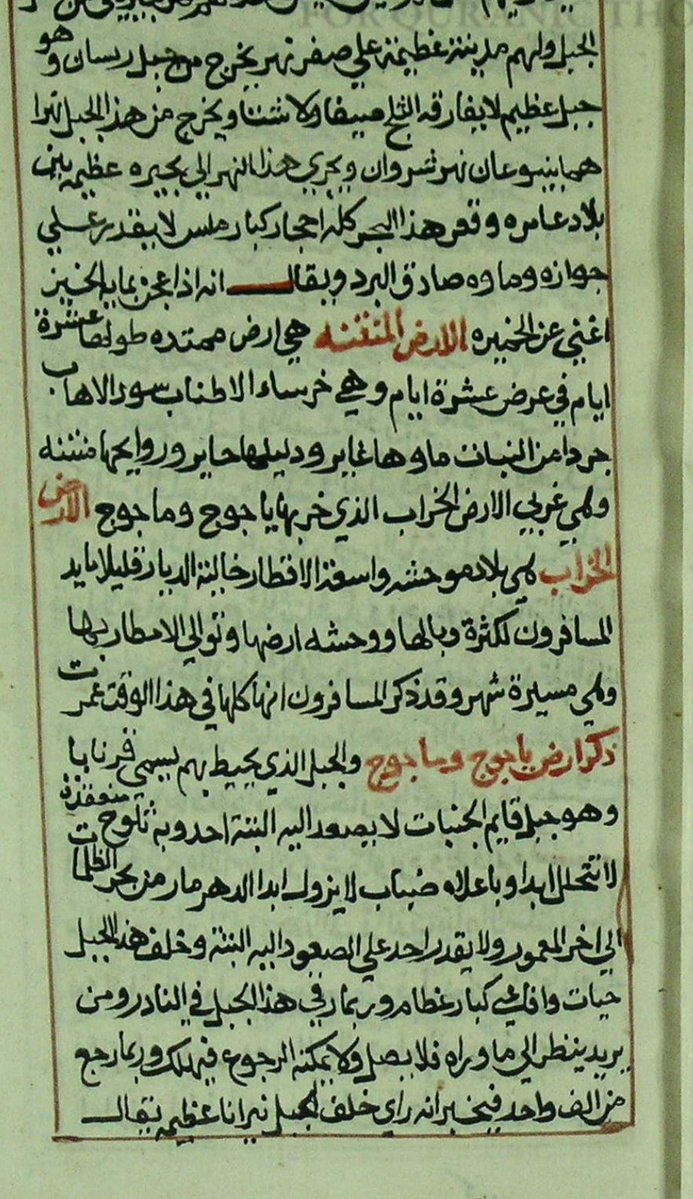 FOR QURANIC THO
الجبل ولهم مدينة عظيمة علي صفر نهر يخرج من جبل ريسان وهو
جبل عظيم لا يفارقه الثلج صيفا ولا شتا ويخرج من هذا الجبل نهرا
هما ينبوعان نهر شروان ويجري هذا النهر الي بحيره عظيمه بين
بلاد عامره وقعر هذا البحر كله احجار كبار ملس لا يقدر علي
جوازه وماوه صادق البرد ويقال انه اذا عجن بمايه الخبز
اغني عن الخميره الارض المنتنه هي ارض ممتده طولها عشرة
ايام في عرض عشرة ايام وهي خرساء الاطناب سور الاهاب
جردا من النبات ماوها غاير ودليلها حاير وروايحها منتنه
وهي غربي الارض الخراب الذي خربها ياجوج وماجوج الارض
الخراب هي بلاد موحشه واسعة الاقطار خالية الديار قليلا مايد
المسافرون لكثرة وبالها ووحشه ارضها وتوالي الامطار بها
وهي مسيرة شهر وقد ذكر المسافرون انها كلها في هذا الوقت عمرت
ذكر ارض ياجوج وماجوج والجبل الذي يحيط بهم يسمي قرنايا
وهو جبل قايم الجنبات لا يصعد اليه البتة احد وبه ثلوج منعقدة
لا تتحلل ابدا وباعلاه ضباب لا يزول ابدا الدهر مار من بحر الظلمات
الي اخر المعمور ولا يقدر احد علي الصعود اليه البتة وخلف هذا الجبل
حيات وافاعي كبار عظام وربما رقي هذا الجبل في النادر ومن
يريد ينظر الي ما وراه فلا يصل ولا يمكنه الرجوع فيهلك وربما رجع
من الف واحد فيخبر انه راي خلف الجبل نيرانا عظيمه يقال